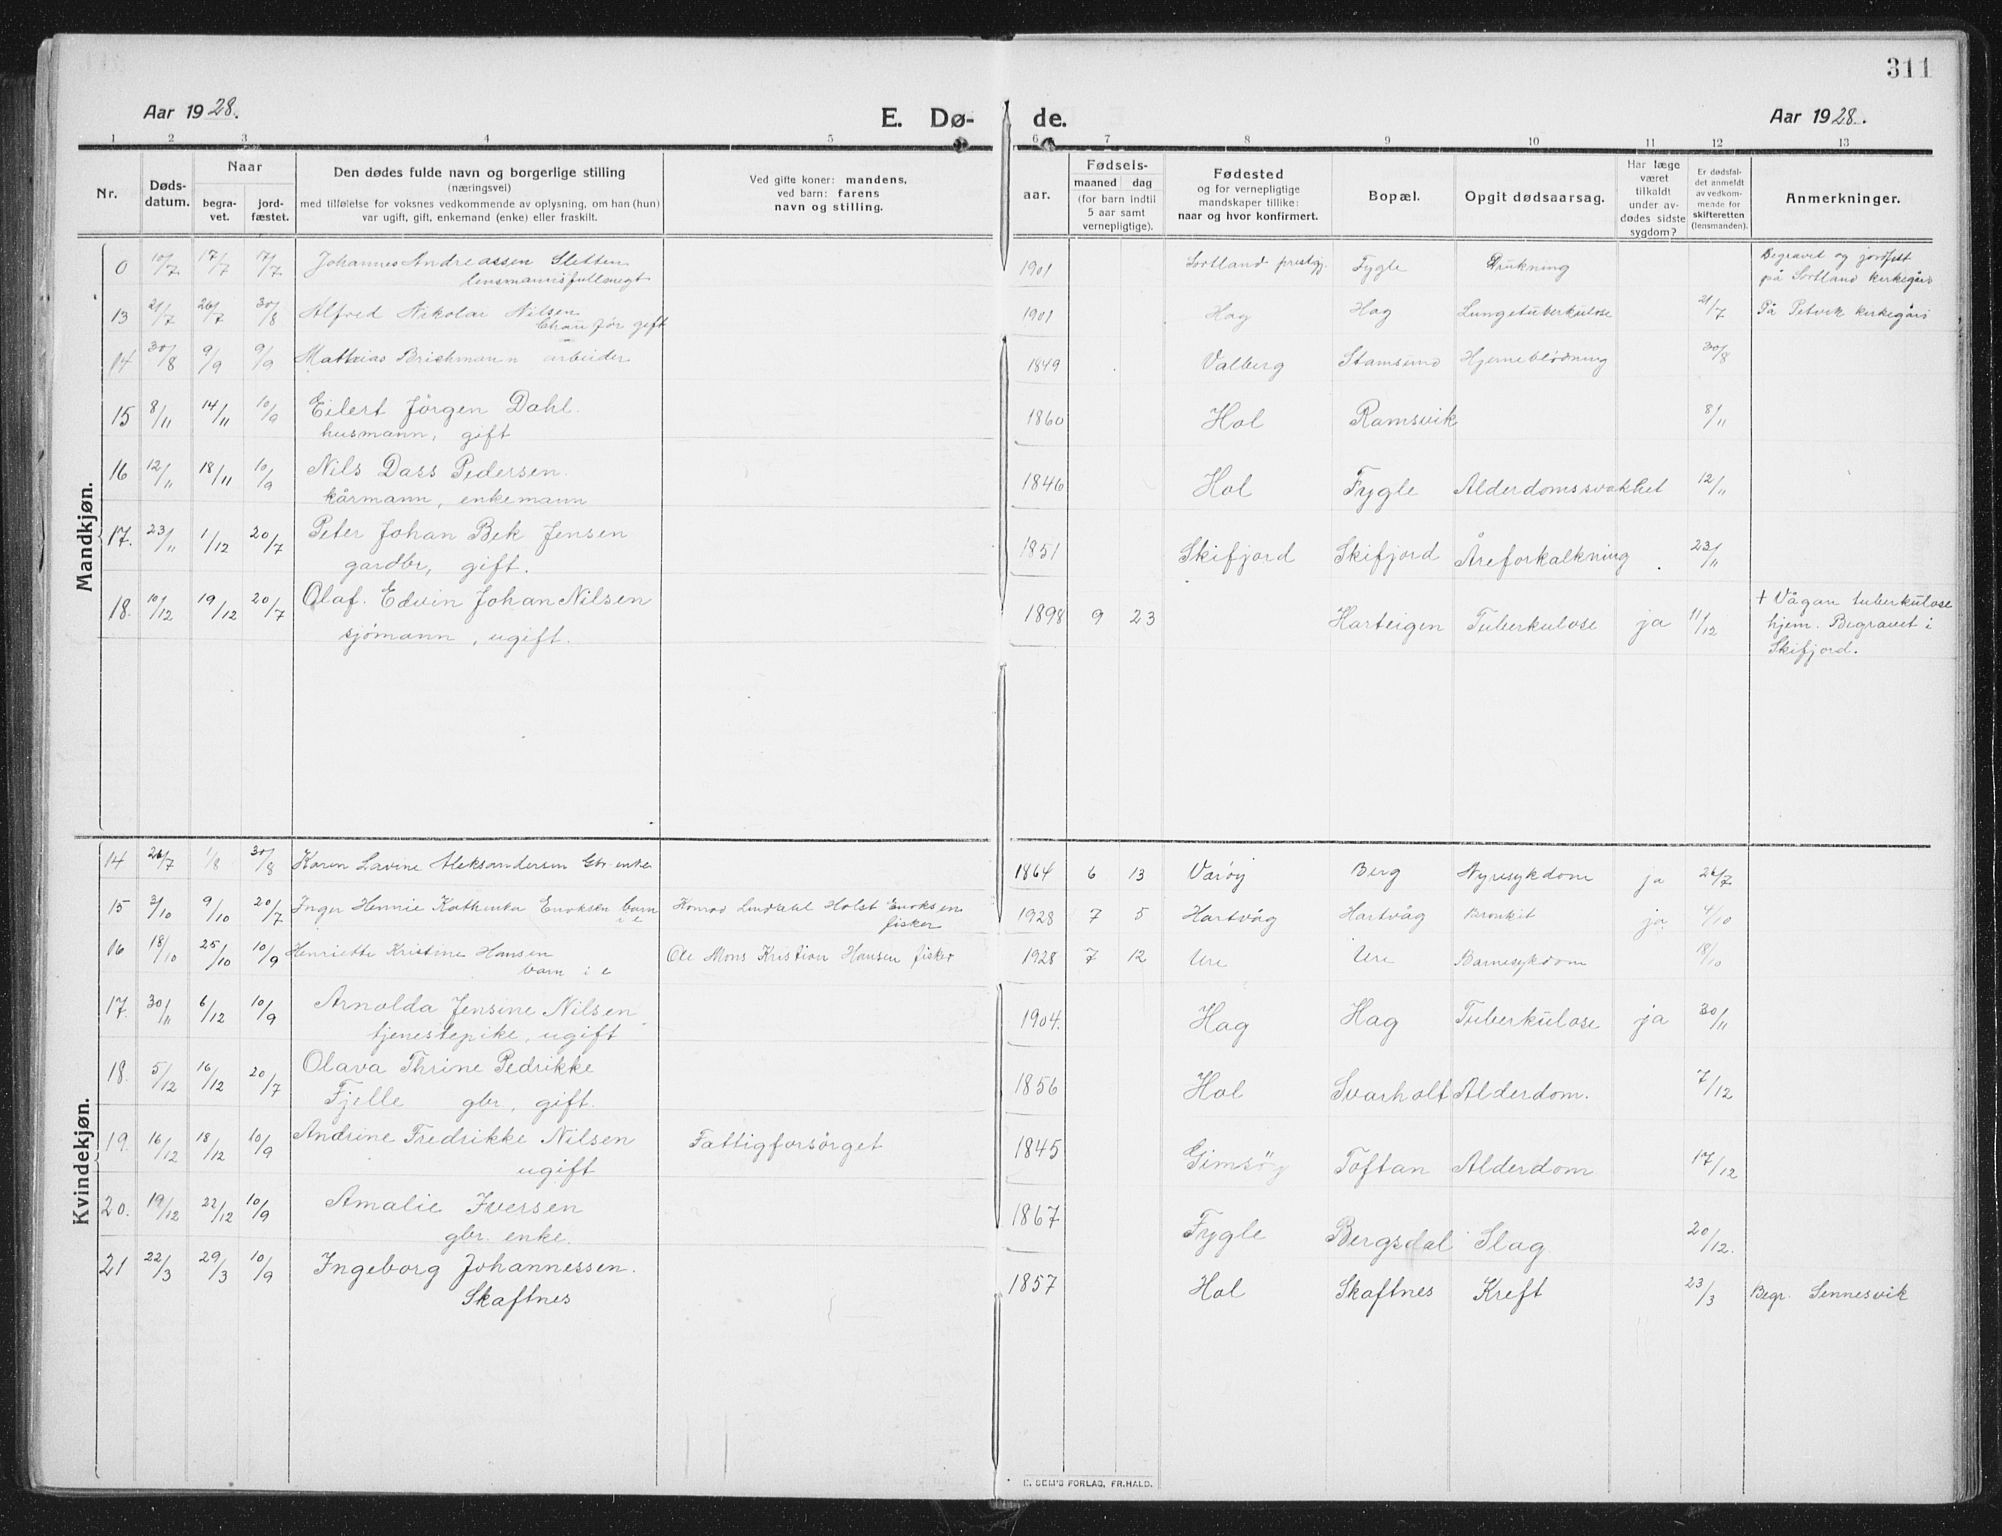 311
Aar 1928.
E. Dø- de.
Aar 1928.
1 2 3 4 5 6 7 8 9 10 11 12 13
Nr.
Døds-
datum.
Naar
begra-
vet.
jord-
fæstet.
Den dødes fulde navn og borgerlige stilling
(næringsvei)
med tilføielse for voksnes vedkommende av oplysning, om han (hun)
var ugift, gift, enkemand (enke) eller fraskilt.
Ved gifte koner: mandens,
ved barn: farens
navn og stilling.
aar.
Fødsels-
maaned dag
(for barn indtil
5 aar samt
vernepligtige).
Fødested
og for vernepligtige
mandskaper tillike:
naar og hvor konfirmert.
Bopæl.
Opgit dødsaarsag.
Har læge
været
tilkaldt
under av-
dødes sidste
sygdom?
Er dødsfal-
det anmeldt
av vedkom-
mende for
skifteretten
(lensmanden).
Anmerkninger.
Mandkjøn.
0 10/7 17/7 17/7 Johannes Andreassen Sletten 1901 Sortland prestegj. Fygle Drukning Begravet og jordfest
lensmannsfullmegt på Sortland kirkegård
13 21/7 26/7 30/8 Alfred Nikolai Nilsen 1901 Hag Hag Lungetuberkulose 21/7 På Petvik kirkegård
Chaufför gift
14 30/8 9/9 9/9 Mathias Brichmann arbeider 1849 Valberg Stamsund Hjerneblödning 30/8
15 8/11 14/11 10/9 Eilert Jörgen Dahl. 1860 Hol Ramsvik 8/11
husmann, gift
16 12/11 18/11 10/9 Nils Dass Pedersen. 1846 Hol Fygle Alderdomssvakhet 12/11
kårmann, enkemann
17. 23/11 1/12 20/7 Peter Johan Bek Jensen 1851 Skifjord Skifjord Åreforkalkning 23/11
gardbr, gift.
18. 10/12 19/12 20/7 Olaf. Edvin Johan Nilsen 1898 9 23 Harteigen Tuberkulose ja 11/12 + Vågan tuberkulose
sjömann, ugift. hjem. Begravet i
Skifjord.
Kvindekjøn.
14 26/7 1/8 30/8 Karen Lavine Aleksandersen Gbr. enke 1864 6 13 Våröy Berg Nyresykdom ja 26/7
15 3/10 9/10 20/7 Inger Hennie Kathinka Enoksen barn Konrad Linddahl Holst Enoksen 1928 7 5 Hartvåg Hartvåg Bronkit ja 4/10
i e fisker
16 18/10 25/10 10/9 Henriette Kristine Hansen Ole Mons Kristian Hansen fisker 1928 7 12 Ure Ure Barnesykdom 18/10
barn i e
17. 30/11 6/12 10/9 Arnolda Jensine Nilsen 1904. Hag Hag Tuberkulose ja 30/11
tjenestepike, ugift
18. 5/12 16/12 20/7 Olava Thrine Pedrikke 1856 Hol Svarholt Alderdom. 7/12
Fjelle gbr, gift.
19. 16/12 18/12 10/9 Andrine Fredrikke Nilsen Fattigforsörget 1845 Gimsöy Toftan Alderdom 17/12
ugift
20. 19/12 22/12 10/9 Amalie Iversen 1867 Fygle Bergsdal Slag 20/12.
gbr. enke.
21 22/3 29/3 10/9 Ingeborg Johannessen. 1857 Hol Skaftnes Kreft 23/3 Begr. Sennesvik
Skaftnes
E. SEM'S FORLAG, FR.HALD.